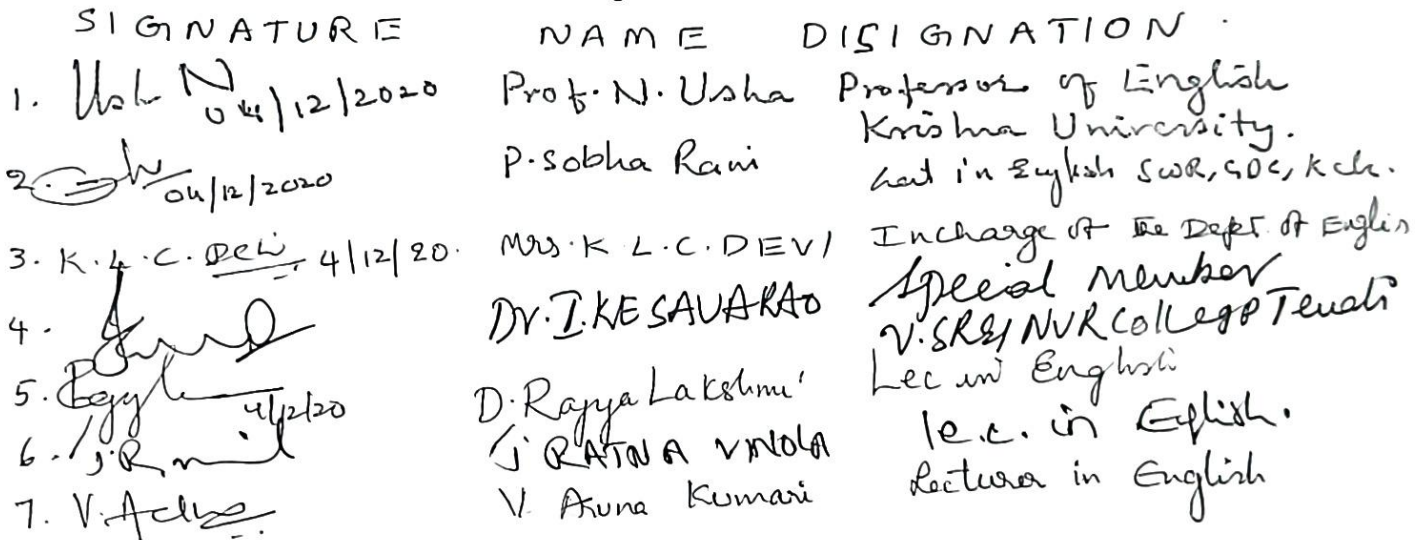 SIGNATURE NAME DISIGNATION
1. Usha N 04/12/2020 Prof. N. Usha Professor of English
Krishna University.
2. 04/12/2020 P. Sobha Rani Lect in English SWR, GDC, Kck.
3. K.L.C. Devi 4/12/20. Mrs. K L.C. DEVI Incharge of the Dept. of Englis
4. Dr. I. KESAVARAO Special Member
V.SR & NVR College Tenali
5. 4/12/20 D. Rajya Lakshmi Lec in English
6. J. R J RATNA lec. in English.
7. V. V. Aruna Kumari Lecturer in English